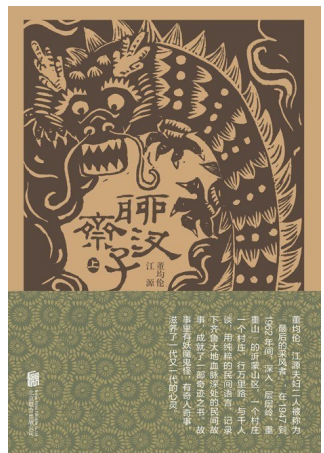 聊齋汊子
上
董均伦
江源
董均伦、江源夫妇二人被称为
“最后的采风者”，在1947到
1962年间，深入“层层峰，重
重山”的沂蒙山区，一个村庄
一个村庄，行万里路，与千人
谈，用纯粹的民间语言，记录
下齐鲁大地血脉深处的民间故
事，成就了一部奇迹之书。故
事里有妖魔鬼怪，有奇人奇事，
滋养了一代又一代的心灵。
北京联合出版公司